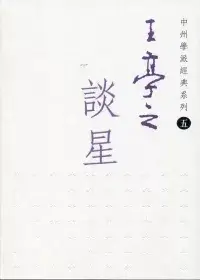 中州學派經典系列 五
王亭之
談星